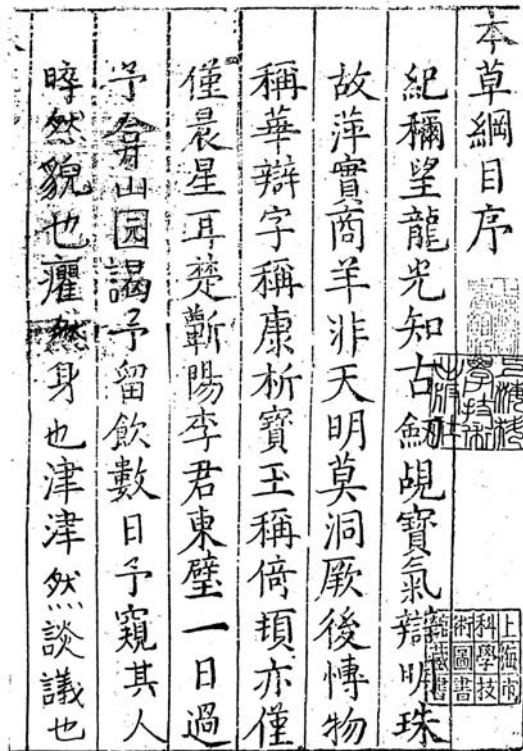 本草綱目序
紀穪望龍光知古劒覘寶氣辯明珠
故萍實商羊非天明莫洞厥後愽物
稱華辯字稱康析寶玉稱倚頓亦僅
僅晨星耳楚蘄陽李君東璧一日過
予弇山园謁予留飲數日予窺其人
睟然貌也癯然身也津津然談議也
上海科
學技術
出版社
上海市
科學技
術圖書
館藏書